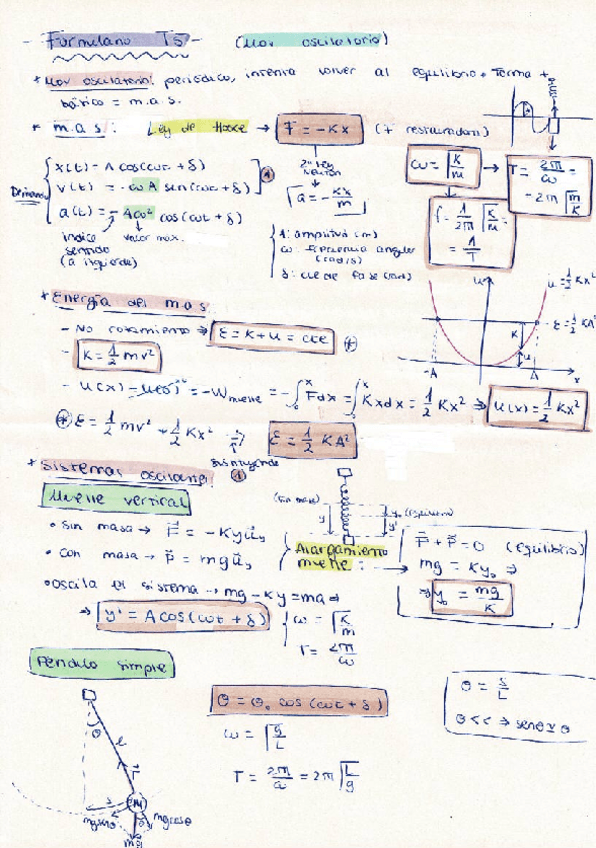 - Formulario T5 - (Mov oscilatorio)
* Mov oscilatorio: periódico, intenta volver al equilibrio. Forma +
básico = m.a.s.
* m.a.s: Ley de Hooke → F = -Kx (F restauradora)
Derivamos
x(t) = A cos(ωt + δ)
v(t) = -ωA sen(ωt + δ)
a(t) = -Aω² cos(ωt + δ)
indica sentido (a izquierda)
valor máx.
2ª ley Newton
a = -Kx/m
ω = √K/m → T = 2π/ω = 2π √m/K
f = 1/2π √K/m = 1/T
A: amplitud (m)
ω: frecuencia angular (rad/s)
δ: cte de fase (rad)
* Energía del m.a.s
- No rozamiento → E = K + U = cte
- K = 1/2 mv²
- U(x) - U(0) = -W muelle = -∫₀ˣ Fdx = ∫₀ˣ Kxdx = 1/2 Kx² ⇒ U(x) = 1/2 Kx²
* E = 1/2 mv² + 1/2 Kx² ⇒ E = 1/2 KA²
sustituyendo
u
U = 1/2 Kx²
E = 1/2 KA²
K
U
-A
A
x
* Sistemas oscilantes
Muelle vertical
• Sin masa → F = -Kyu_y
• con masa → P = mgu_y
• Oscila el sistema → mg - Ky = ma ⇒
⇒ y' = A cos(ωt + δ)
ω = √K/m
T = 2π/ω
(sin masa)
y
y₀ (equilibrio)
y'
Alargamiento muelle:
F + P = 0 (equilibrio)
mg = Ky₀ ⇒
⇒ y₀ = mg/K
Péndulo simple
θ = θ₀ cos(ωt + δ)
ω = √g/L
T = 2π/ω = 2π √L/g
θ = s/L
θ<< ⇒ senθ ≈ θ
θ
l
T
s
M
mgsenθ
mgcosθ
mg